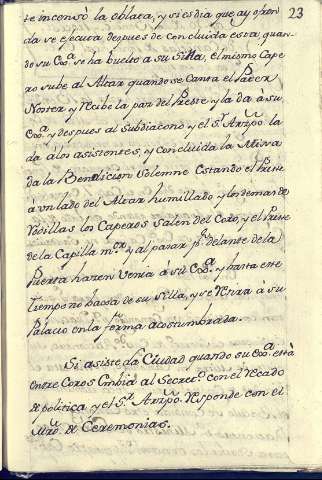 23
te incensó la oblata, y si es dia que ay ofren
da se ejecuta despues de concluida esta, quan
do su Exª se ha buelto a su Silla, el mismo Cape
ro sube al Altar quando se Canta el Pater
Noster y recibe la paz del Preste y la da à su
Exª y despues al Subdiacono y el Sr Arzpo. la
da à los asistentes, y concluida la Missa
da la Bendicion Solemne estando el Preste
à vn lado del Altar humillado y los demas de
rodillas los Caperos salen del Coro, y el Preste
de la Capilla mor y al pasar pr. delante de la
Puerta hazen Venia à su Exª y hasta este
tiempo no baxa de su Silla, y se retira à su
Palacio en la forma acostumbrada.
Si asiste la Ciudad quando su Exª està
entre Coros embia al Secreto. con el recado
de politica y el Sr. Arzpo. responde con el
Mro. de Ceremonias.